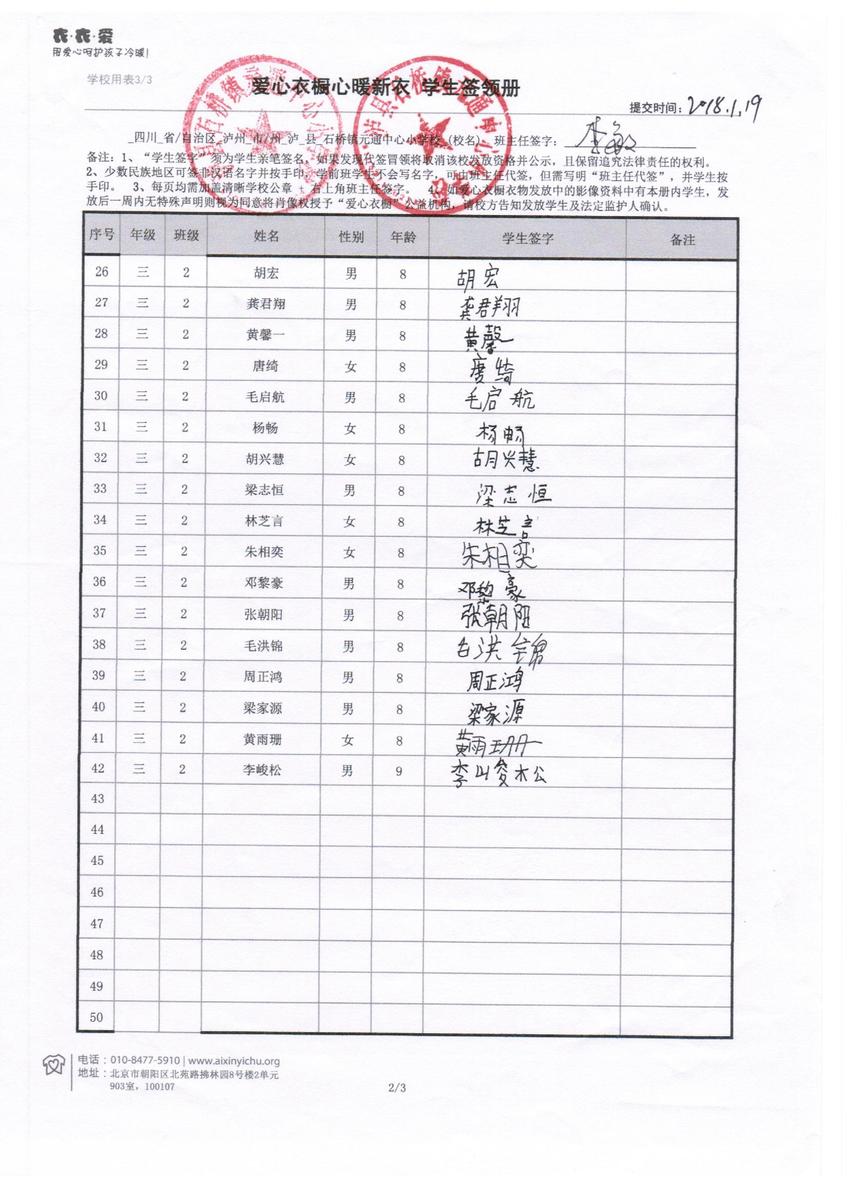 衣·衣·爱
用爱心呵护孩子冷暖!
学校用表3/3
爱心衣橱心暖新衣 学生签领册
提交时间：2018.1.19
_四川_省/自治区_泸州_市/州_泸_县_石桥镇元通中心小学校_(校名) 班主任签字：李敏
备注：1、“学生签字”须为学生亲笔签名，如果发现代签冒领将取消该校发放资格并公示，且保留追究法律责任的权利。
2、少数民族地区可签非汉语名字并按手印。学前班学生不会写名字，可由班主任代签，但需写明“班主任代签”，并学生按
手印。 3、每页均需加盖清晰学校公章，右上角班主任签字。 4、如爱心衣橱衣物发放中的影像资料中有本册内学生，发
放后一周内无特殊声明则视为同意将肖像权授予“爱心衣橱”公益机构，请校方告知发放学生及法定监护人确认。
序号 年级 班级 姓名 性别 年龄 学生签字 备注
26 三 2 胡宏 男 8 胡宏
27 三 2 龚君翔 男 8 龚君翔
28 三 2 黄馨一 男 8 黄馨一
29 三 2 唐绮 女 8 唐绮
30 三 2 毛启航 男 8 毛启航
31 三 2 杨畅 女 8 杨畅
32 三 2 胡兴慧 女 8 胡兴慧
33 三 2 梁志恒 男 8 梁志恒
34 三 2 林芝言 女 8 林芝言
35 三 2 朱相奕 女 8 朱相奕
36 三 2 邓黎豪 男 8 邓黎豪
37 三 2 张朝阳 男 8 张朝阳
38 三 2 毛洪锦 男 8 毛洪锦
39 三 2 周正鸿 男 8 周正鸿
40 三 2 梁家源 男 8 梁家源
41 三 2 黄雨珊 女 8 黄雨珊
42 三 2 李峻松 男 9 李峻松
43
44
45
46
47
48
49
50
电话：010-8477-5910 | www.aixinyichu.org
地址：北京市朝阳区北苑路拂林园8号楼2单元
903室，100107
2/3